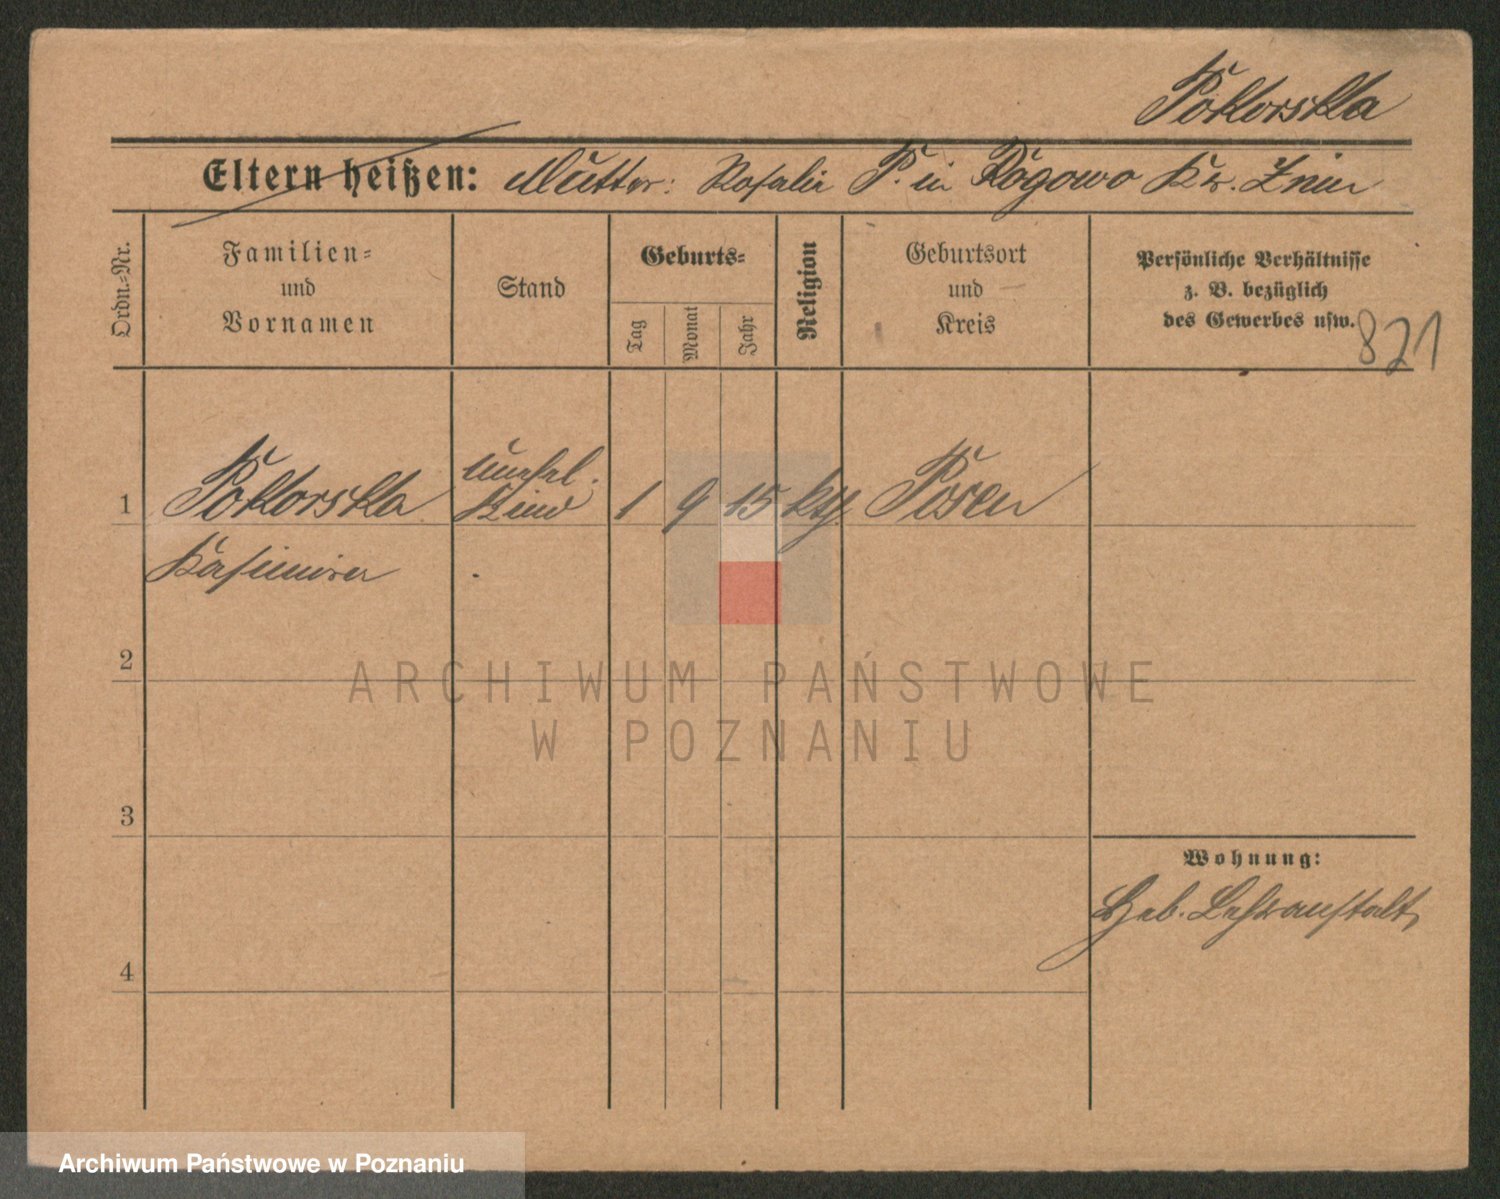 Poklorska
Eltern heißen: Mutter: Rosalie P. in Rogowo Kr. Znin
Ordn.-Nr.
Familien-
und
Vornamen
Stand
Geburts-
Tag
Monat
Jahr
Religion
Geburtsort
und
Kreis
Persönliche Verhältnisse
z. B. bezüglich
des Gewerbes usw.
821
unehel.
1 Poklorska Kind 1 9 15 kth. Posen
Kasimira
2
3
4
Wohnung:
Heb. Lehranstalt
ARCHIWUM PAŃSTWOWE
W POZNANIU
Archiwum Państwowe w Poznaniu